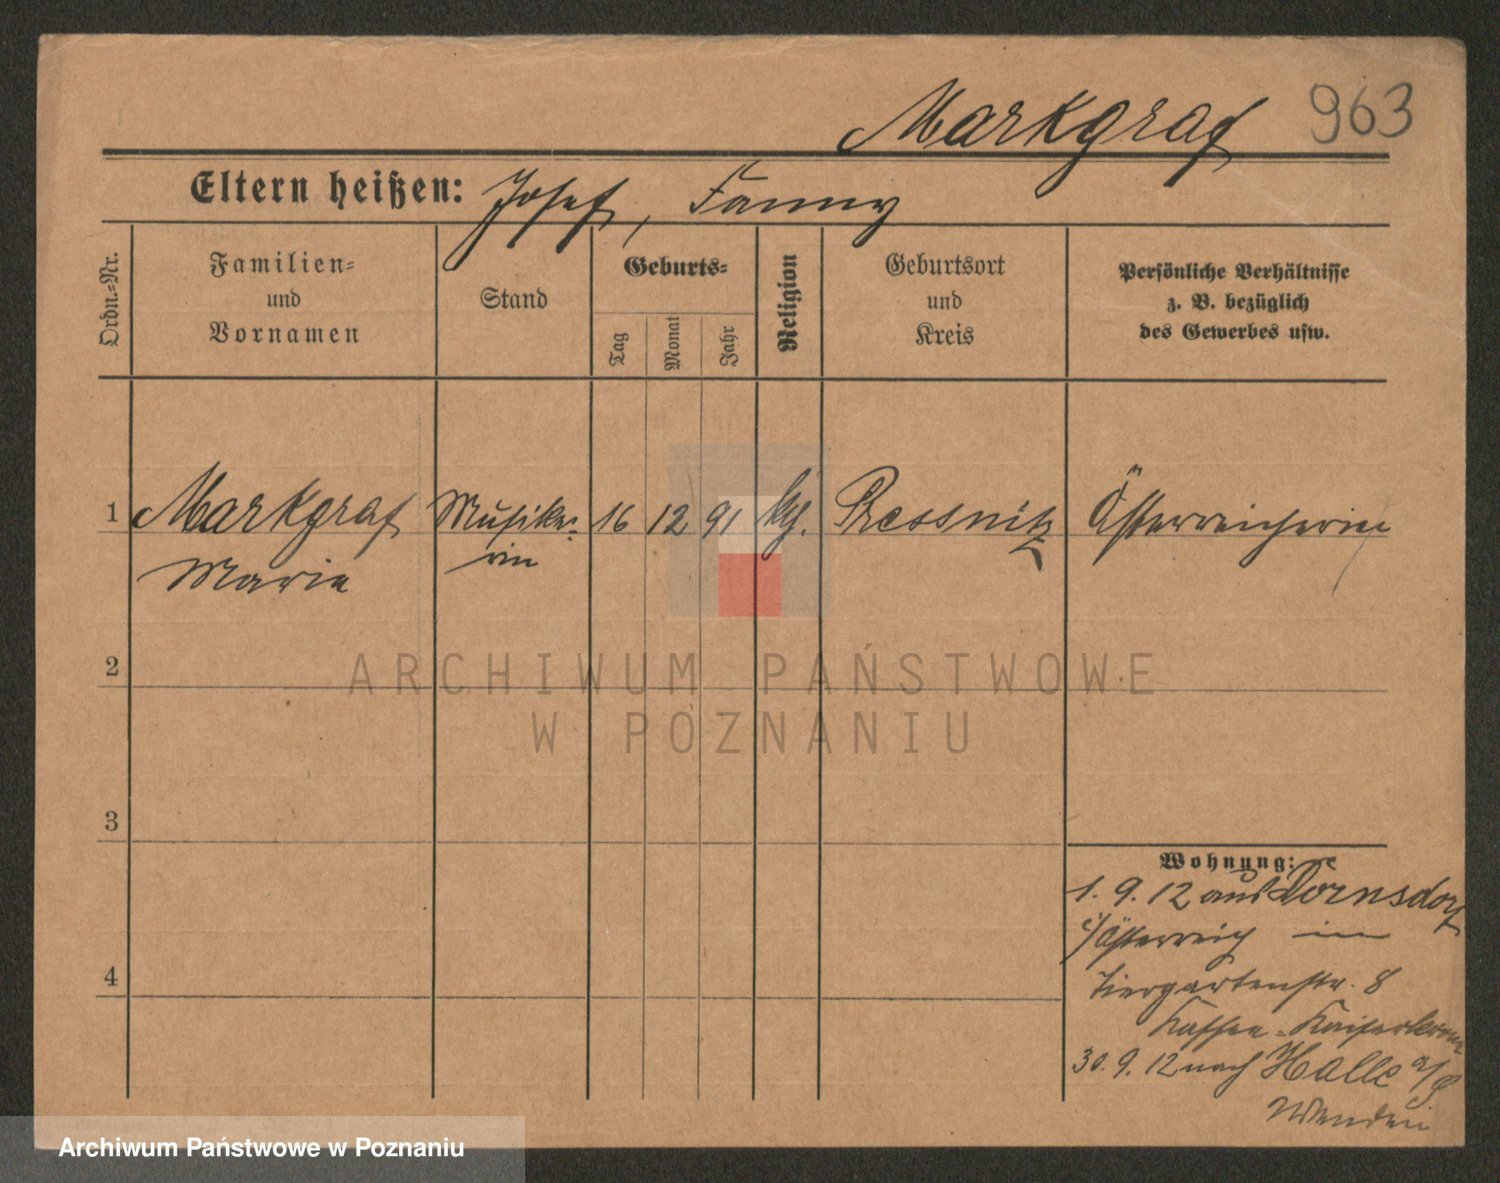 Markgraf 963
Eltern heißen: Josef, Fanny
Ordn.-Nr.
Familien-
und
Vornamen
Stand
Geburts-
Tag
Monat
Jahr
Religion
Geburtsort
und
Kreis
Persönliche Verhältnisse
z. B. bezüglich
des Gewerbes usw.
1 Markgraf Musike- 16 12 91 kth. Pressnitz Österreicherin
Marie rin
2
3
4
Wohnung:
1. 9. 12 aus Dörnsdorf
i/Österreich in
Tiergartenstr. 8
Kaffee-Kaiserkrone
30. 9. 12 nach Halle a/S
ARCHIWUM PAŃSTWOWE
W POZNANIU
Archiwum Państwowe w Poznaniu